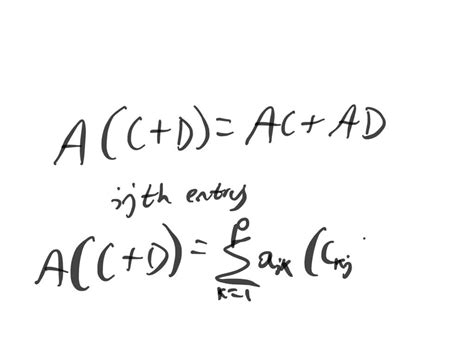 A(C+D)=AC+AD
ijth entry
A(C+D)=∑_{k=1}^{p} a_{ik}(C_{kj}